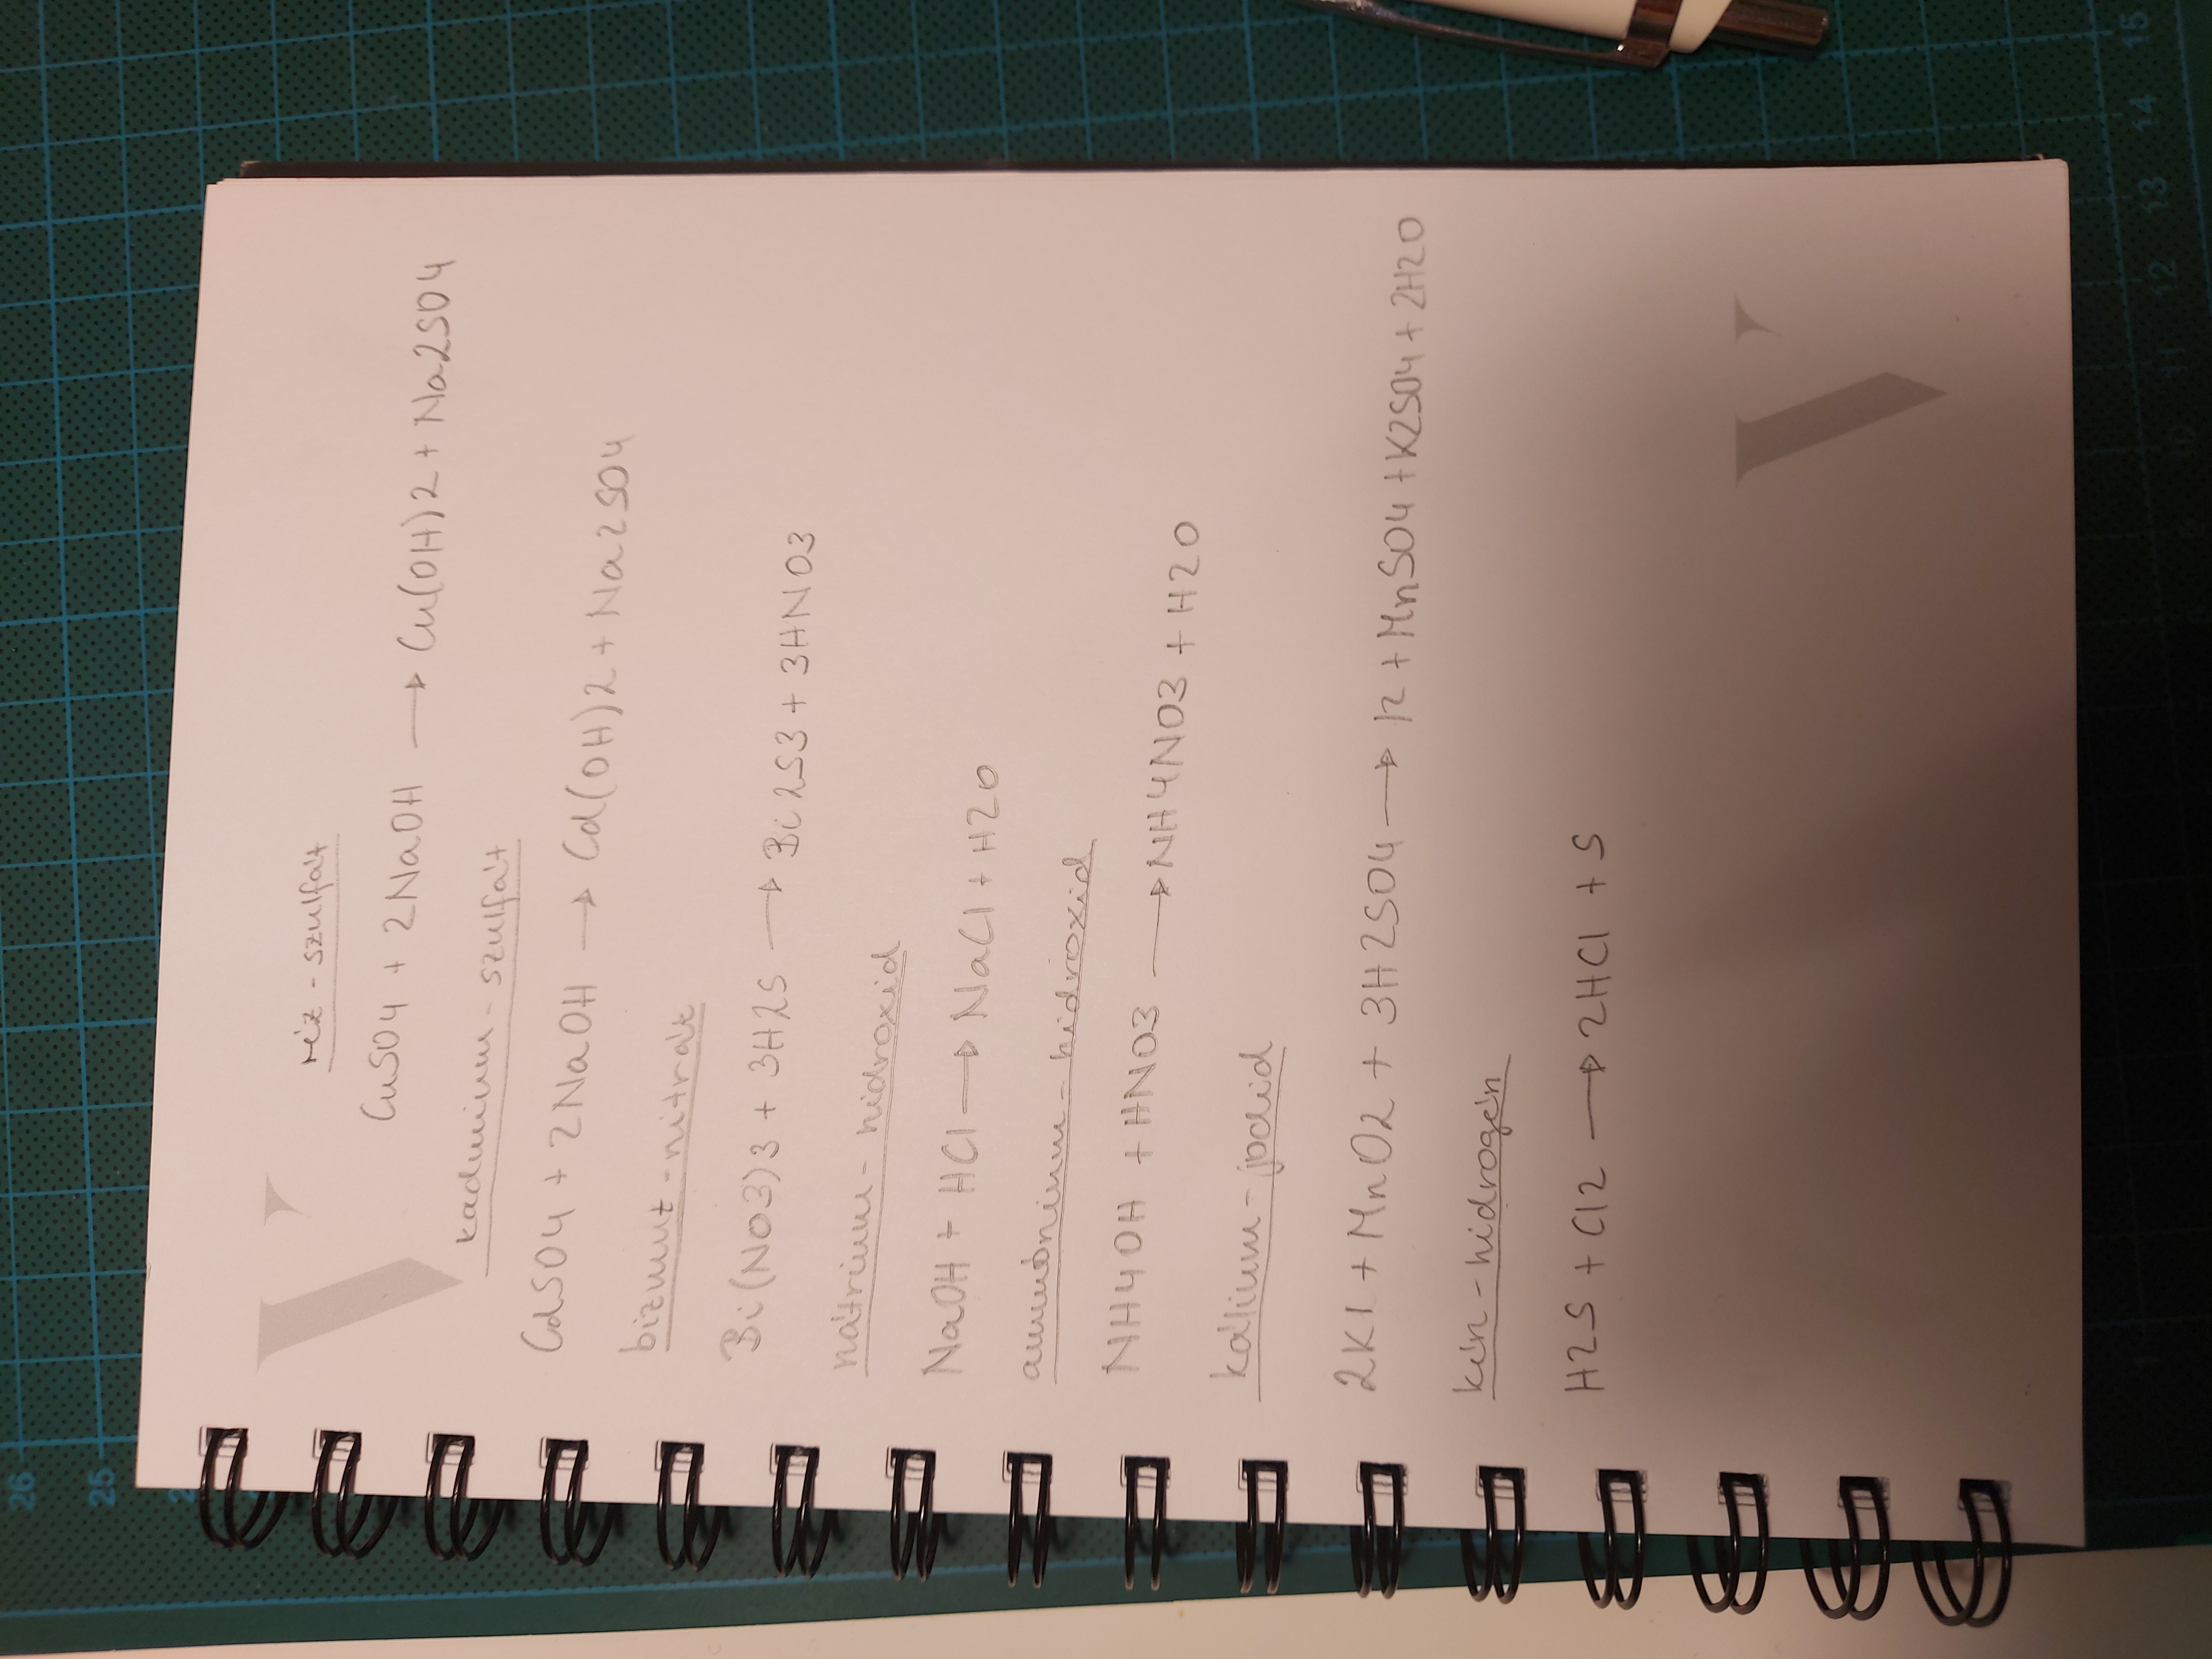 réz-szulfát
CuSO4 + 2NaOH → Cu(OH)2 + Na2SO4
kadmium-szulfát
CdSO4 + 2NaOH → Cd(OH)2 + Na2SO4
bizmut-nitrát
Bi(NO3)3 + 3H2S → Bi2S3 + 3HNO3
nátrium-hidroxid
NaOH + HCl → NaCl + H2O
ammónium-hidroxid
NH4OH + HNO3 → NH4NO3 + H2O
kálium-jodid
2KI + MnO2 + 3H2SO4 → I2 + MnSO4 + K2SO4 + 2H2O
kén-hidrogén
H2S + Cl2 → 2HCl + S
26
25
15
14
13
12
11
10
1